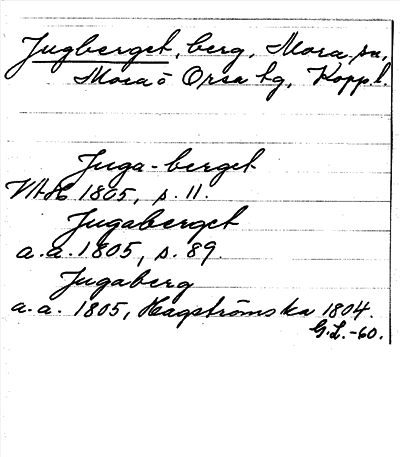 Jugberget, berg, Mora sn,
Mora o Orsa tg, Kopp.l.
Juga-berget
VAH 1805, s. 11.
Jugaberget
a.a. 1805, s. 89.
Jugaberg
a.a. 1805, Hagströmska 1804.
G.L.-60.